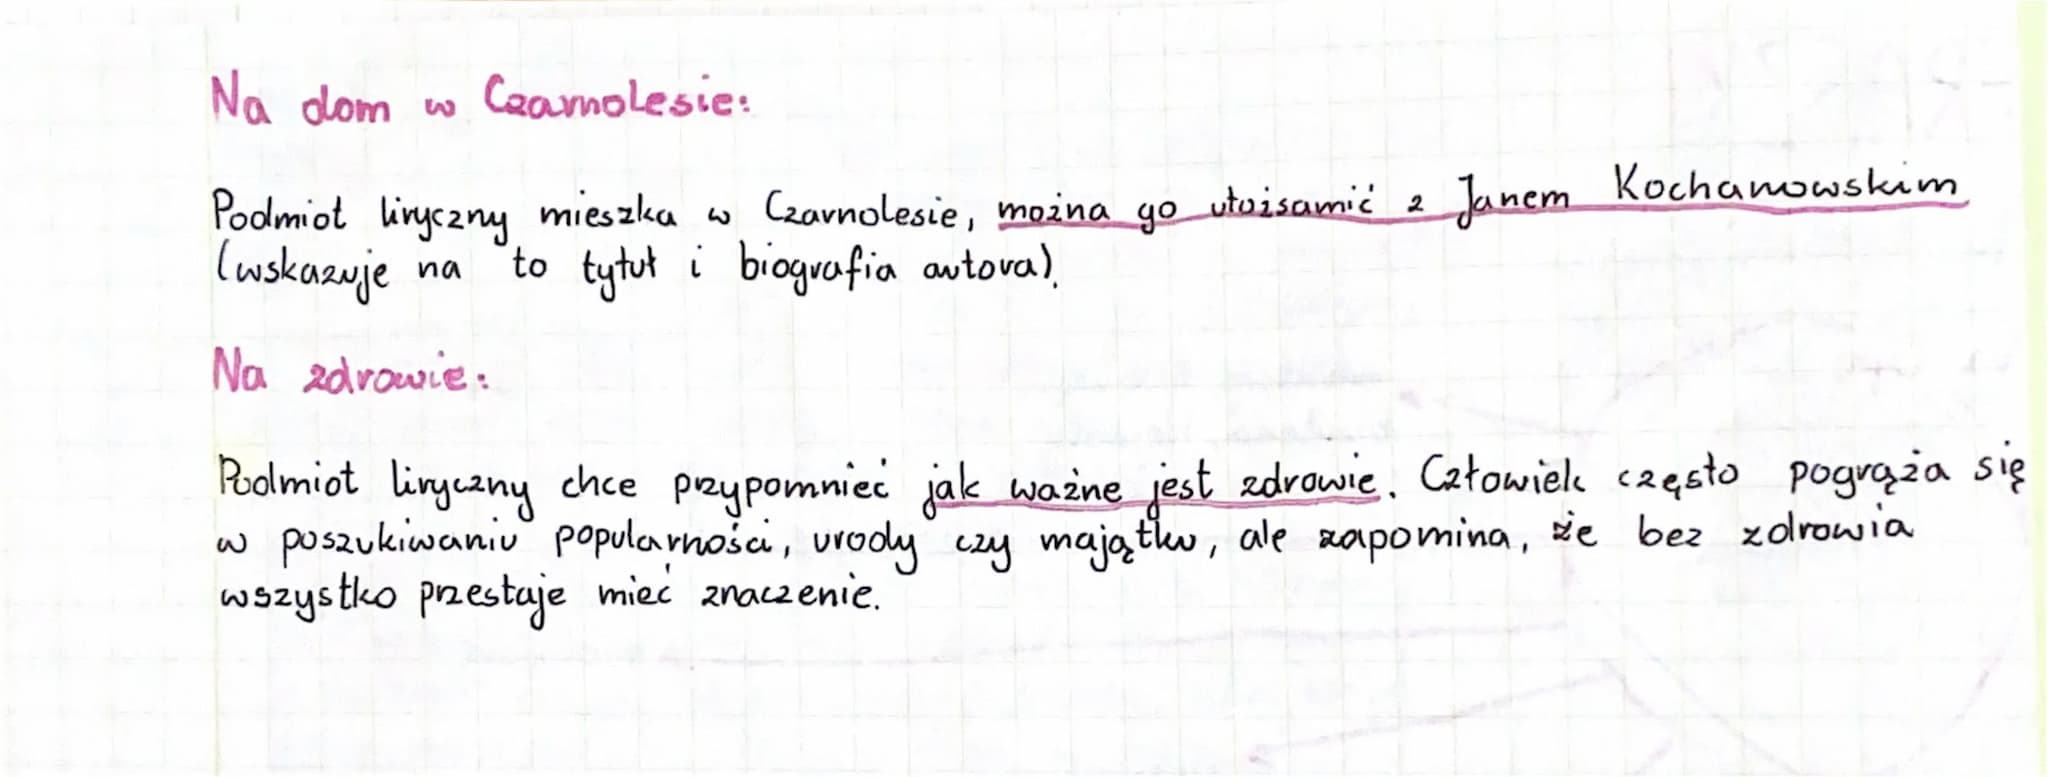 Na dom w Czarnolesie:
Podmiot liryczny mieszka w Czarnolesie, można go utożsamić z Janem Kochanowskim
(wskazuje na to tytuł i biografia autora).
Na zdrowie:
Podmiot liryczny chce przypomnieć jak ważne jest zdrowie. Człowiek często pogrąża się
w poszukiwaniu popularności, urody czy majątku, ale zapomina, że bez zdrowia
wszystko przestaje mieć znaczenie.